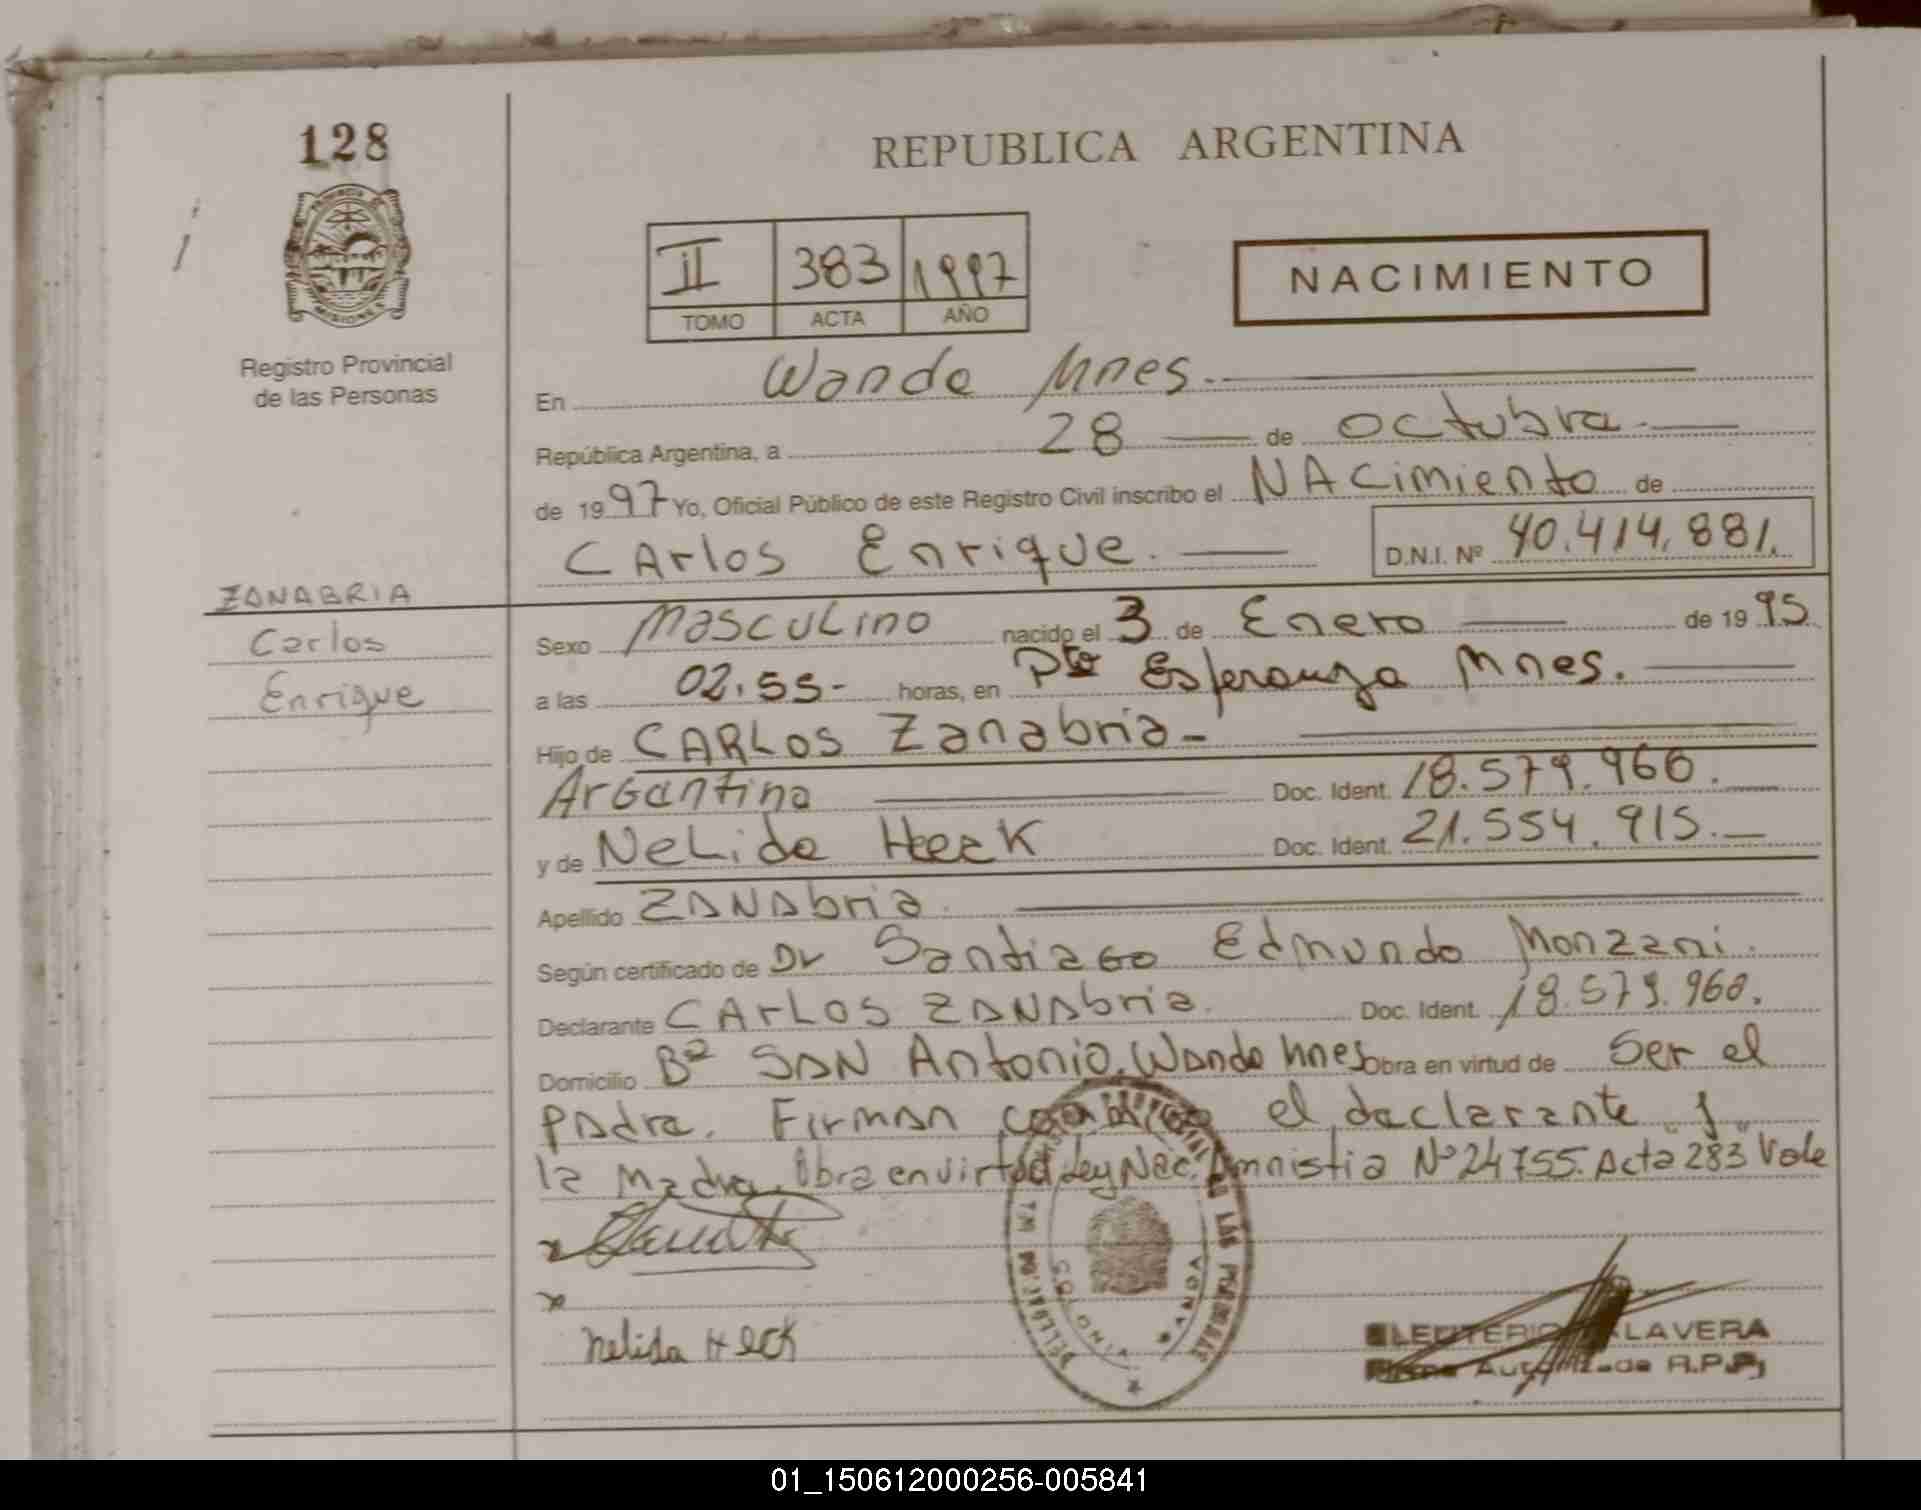 128
REPUBLICA ARGENTINA
PROVINCIA DE
MISIONES
Registro Provincial
de las Personas
II 383 1997
TOMO ACTA AÑO
NACIMIENTO
En Wanda Mnes.
República Argentina, a 28 de octubra
de 1997 Yo, Oficial Público de este Registro Civil inscribo el NAcimiento de
CArlos Enrique. D.N.I. Nº 40.414.881.
ZANABRIA
Carlos
Enrique
Sexo MascuLino nacido el 3 de Enero de 1995
a las 02.55- horas, en Pto Esperanza Mnes.
Hijo de CARLOS Zanabria-
Argantino Doc. Ident. 18.579.960.
y de NeLida Heck Doc. Ident. 21.554.915.
Apellido ZANAbria
Según certificado de Dr Santiago Edmundo Monzani.
Declarante CArLos ZANAbria. Doc. Ident. 18.579.960.
Domicilio Bº SAN Antonio. Wanda Mnes Obra en virtud de Ser el
padra. Firman el daclarante y
la Madra. Obra en virtud Ley Nac. Amnistia Nº 24755. Acta 283 Vale
x
x
Nelida Heck
WANDA
ELEUTERIO TALAVERA
Firma Autorizada R.P.P.
01_150612000256-005841